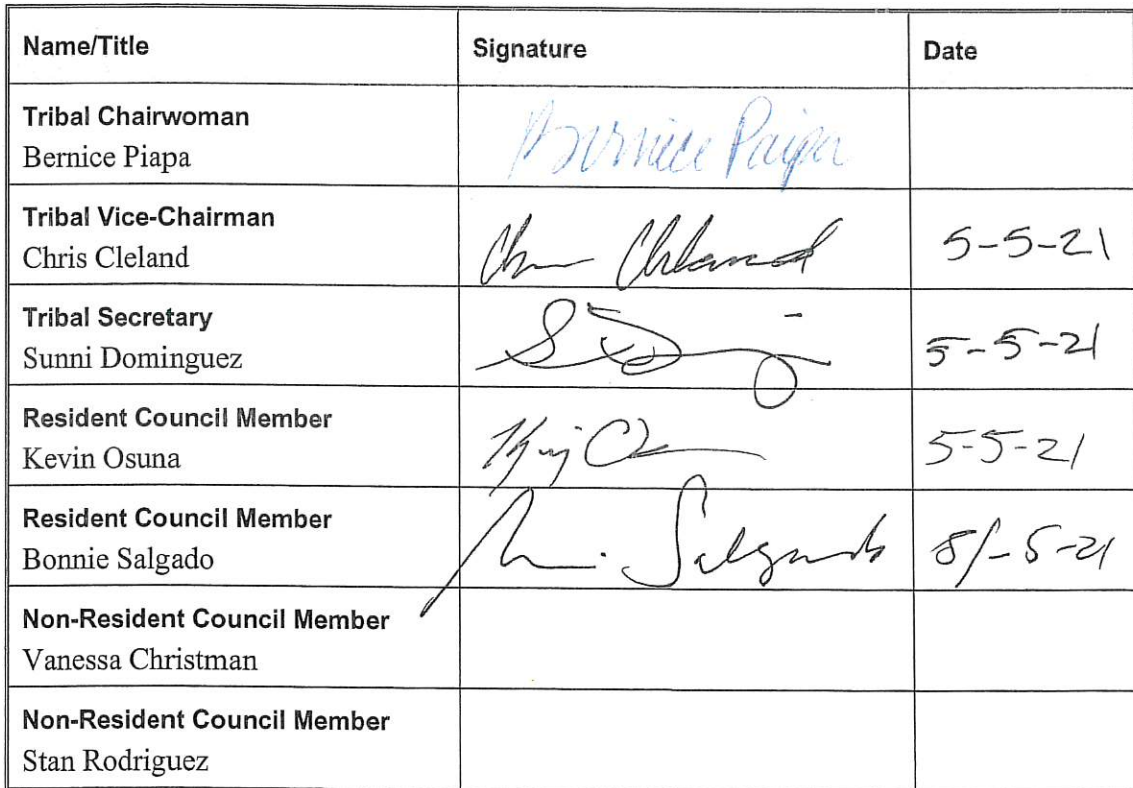 Name/Title Signature Date
Tribal Chairwoman
Bernice Piapa Bernice Paipa
Tribal Vice-Chairman
Chris Cleland Chris Cleland 5-5-21
Tribal Secretary
Sunni Dominguez 5-5-21
Resident Council Member
Kevin Osuna 5-5-21
Resident Council Member
Bonnie Salgado Salgado 5-21
Non-Resident Council Member
Vanessa Christman
Non-Resident Council Member
Stan Rodriguez